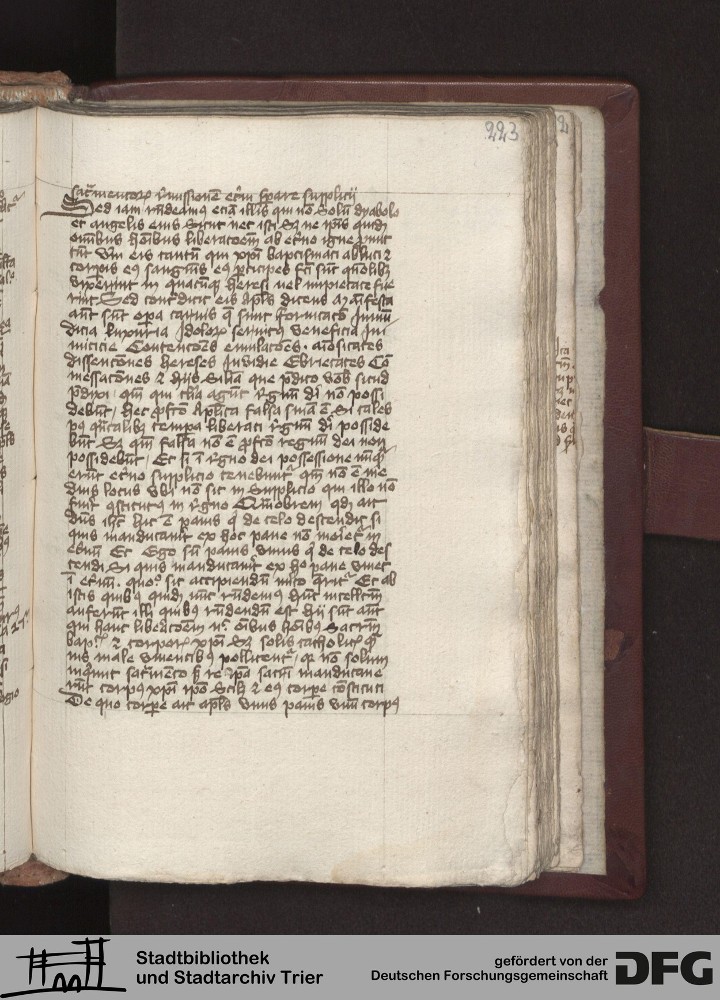 223
sacramentorum remissionem eternam sperare supplicii
Sed iam respondeamus eciam illis qui non solum dyabolo
et angelis eius sicut nec isti sed ne ipsis quidem
omnibus hominibus liberacionem ab eterno igne promit
tunt verum eis tantum qui xpisti baptismati abluti et
corporis eius sanguinis eius participes facti sunt quomodolibet
vixerint in quacumque heresi vel impietate fue
rint Sed contradicit eis apostolus dicens manifesta
autem sunt opera carnis que sunt fornicatio Inmun
dicia luxuria Idolorum servitus veneficia Ini
micicie Contentiones emulaciones animositates
dissenciones hereses Invidie Ebrietates Co
messaciones et hiis similia que predico vobis sicud
predixi quoniam qui talia agunt regnum dei non possi
debunt hec profecto Aplica falsa sententia est Si tales
post quantalibet tempora liberati regnum dei posside
bunt Sed quoniam falsa non est profecto regnum dei non
possidebunt Et si in regno dei possessione numquam
erunt eterno supplicio tenebuntur quoniam non est me
dius locus ubi non sit in Supplicio qui illo non
fuerit constitutus in regno Quamobrem quod ait
dominus ihc hic est panis qui de celo descendit si
quis manducaverit ex hoc pane non morietur in
eternum Et Ego sum panis vivus qui de celo des
cendi Si quis manducaverit ex hoc pane vivet
in eternum quomodo sit accipiendum merito queritur Et ab
istis quibus quidem nunc respondemus hunc intellectum
auferunt illi quibus respondendum est hii sunt autem
qui hanc liberacionem nec omnibus hominibus Sacramentum
bap et corporis xpisti sed solis catholicis quam
vis male viventibus pollicentur quia non solum
inquiunt sacramento sed re ipsa sacramentum manducave
runt corpus xpisti ipso Scilicet et eius corpore constituti
De quo corpore ait apostolus unus panis unum corpus
Stadtbibliothek
und Stadtarchiv Trier
gefördert von der
Deutschen Forschungsgemeinschaft
DFG